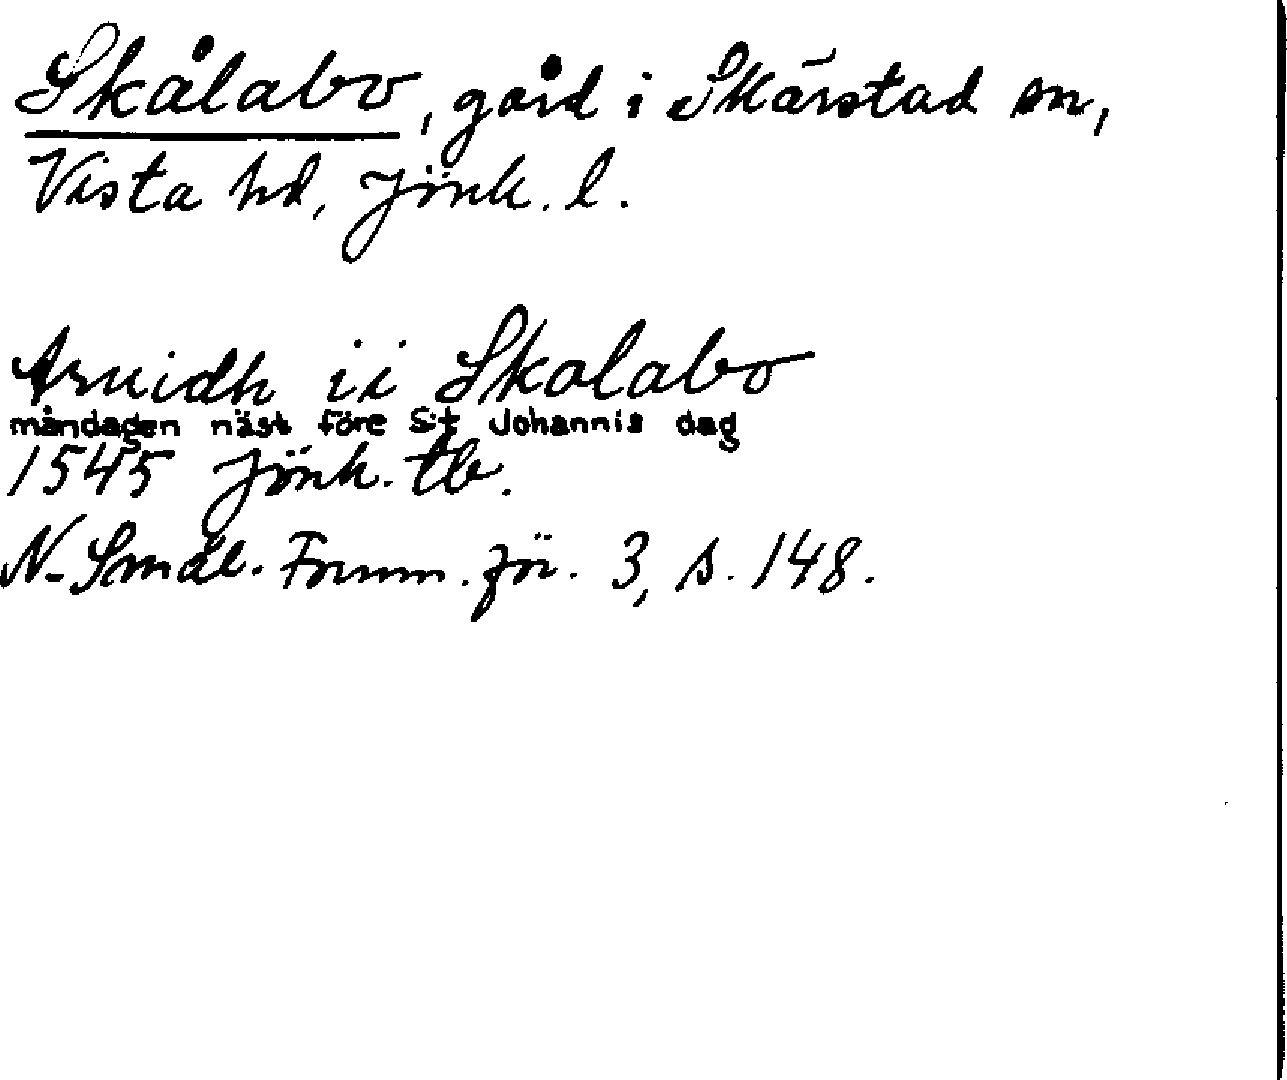 Skålabo, gård i Skärstad sn,
Vista hd, Jönk. l.
Aruidh ii Skolabo
måndagen näst före S:t Johannis dag
1545 Jönk. tb.
N. Smål. Fornm. för. 3, s. 148.